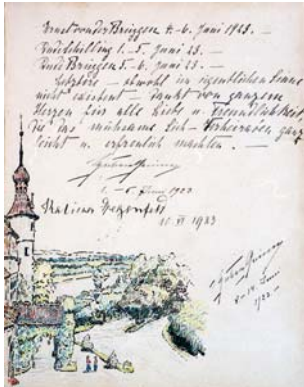 Ernst von der Brüggen 4.-6. Juni 1923. —
Rudi Schilling 1.-5. Juni 23. —
Rudi Brüggen 5.-6. Juni 23. —
Letztere — obwohl im eigentlichen Sinne
nicht — dankt von ganzem
Herzen für alle Liebe u. Freundlichkeit,
die das mühsame Sich- ganz
leicht u. erfreulich machten. —
1. - 6. Juni 1923
Degenfeld
10 VI 1923
8-14. Juni
1923 —